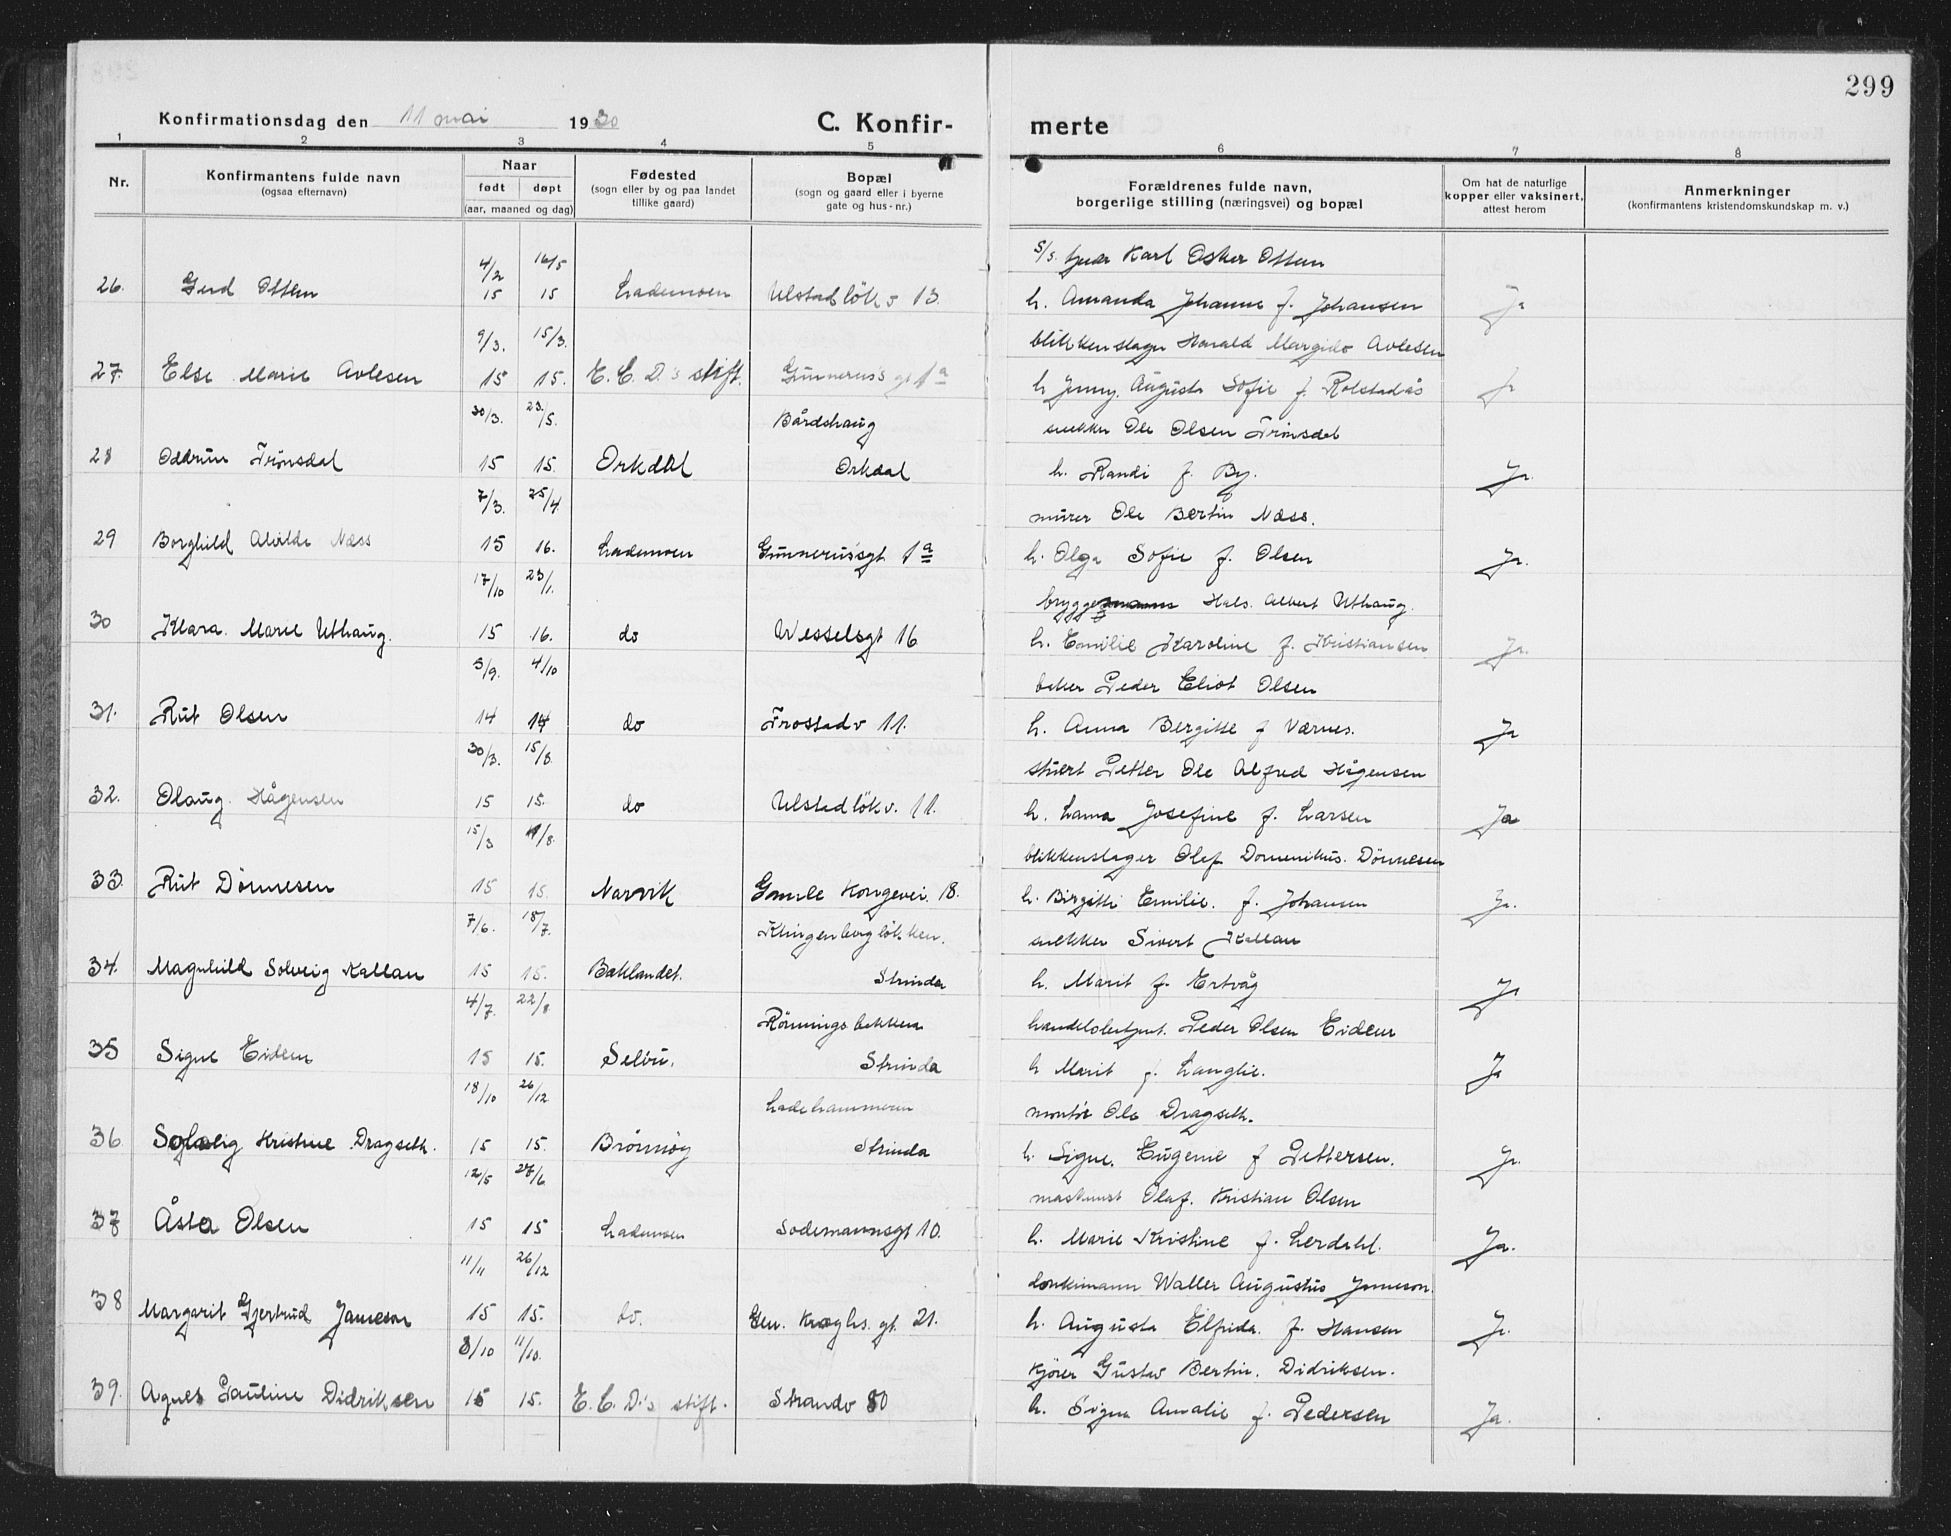 299
Konfirmationsdag den 11 mai 1930 C. Konfir- merte
1 2 3 4 5 6 7 8
Nr.
Konfirmantens fulde navn
(ogsaa efternavn)
Naar
født døpt
(aar, maaned og dag)
Fødested
(sogn eller by og paa landet
tillike gaard)
Bopæl
(sogn og gaard eller i byerne
gate og hus-nr.)
Forældrenes fulde navn,
borgerlige stilling (næringsvei) og bopæl
Om hat de naturlige
kopper eller vaksinert,
attest herom
Anmerkninger
(konfirmantens kristendomskundskap m. v.)
4/2 16/5 Karl Oskar Ottem
26. Gerd Ottem 15 15 Lademoen Ulstadløkv 13. h. Amanda Johanne f. Johansen Ja
9/3. 15/3. blikkenslager Harald Margido Avlesen
27. Else Marie Avlesen 15 15. E. C. D.'s stift. Gunnerus's gt 1a h Jenny Augusta Sofie f. Rolstadås Ja
30/3. 23/5. Bårdshaug snekker Ole Olsen Trønsdal
28 Oddrun Trønsdal 15 15. Orkdal Orkdal h. Randi f. By. Ja.
7/3. 25/4 murer Ole Bertin Næss.
29 Borghild Alvilde Næss 15 16. Lademoen Gunnerus'sgt 1a h. Olga Sofie f. Olsen Ja.
17/10 23/1. Albert Uthaug.
30 Klara Marie Uthaug. 15 16. do Wesselsgt 16 h. Emilie Karoline f. Kristiansen Ja.
5/9. 4/10 baker Peder Eliot Olsen
31. Rut Olsen 14 14 do Frostadv 11. h. Anna Bergitte f Værnes. Ja
30/3. 15/8 stuert Petter Ole Alfred Hågensen
32. Olaug Hågensen 15 15. do Ulstadløkv. 11. h. Laura Josefine f. Larsen Ja
15/3 1/8. blikkenslager Olaf Domenikus. Dönnesen
33. Rut Dönnesen 15 15. Narvik Gamle Kongevei 18. h. Birgitte Emilie. f. Johansen Ja.
7/6. 18/7. Klingenbergløkken. snekker Sivert Kallan
34. Magnhild Solveig Kallan 15 15. Baklandet. Strinda h. Marit f. Ertvåg Ja
4/7. 22/8 Rönningsbakken handelsbetjent. Peder Olsen Eidem
35 Signe Eidem 15 15. Selbu. Strinda h Marit f. Langlie. Ja
18/10 26/12 Ladehammeren montør Ole Dragseth.
36 Solveig Kristine Dragseth. 15 15. Brönnöy Strinda h. Signe. Eugenie f Pettersen. Ja.
12/5 27/6 maskinist Olaf. Kristian Olsen
37 Åsta Olsen 15 15 Lademoen Sodemannsgt 10. h. Marie Kristine f. Lerdahl. Ja.
11/11 26/12 Walter Augustus Jameson.
38 Margarit Gjertrud Jameson 15 15. do. Gen. Kroghs. gt. 21. h. Augusta Elfrida. f. Hansen Ja.
8/10 11/10. kjører Gustav Bertin. Didriksen.
39. Agnes Pauline Didriksen 15 15. E. C. D.'s stift. Strandv 80 h. Signe Amalie f. Pedersen Ja.